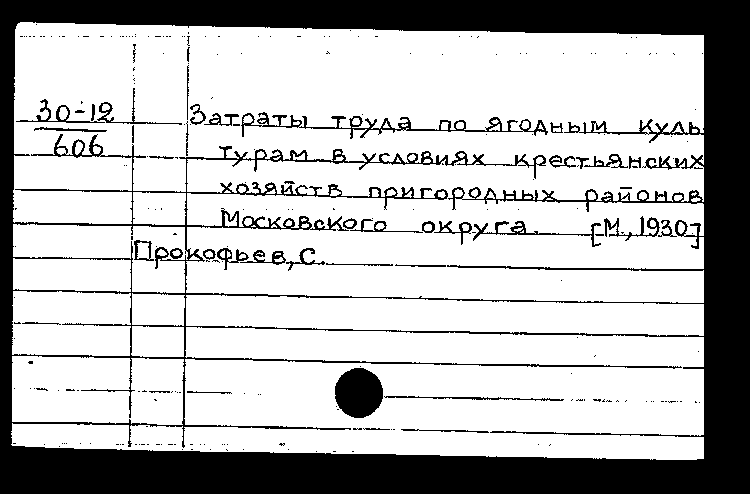 30-12
606
Затраты труда по ягодным куль-
турам в условиях крестьянских
хозяйств пригородных районов
Московского округа. [М., 1930]
Прокофьев, С.